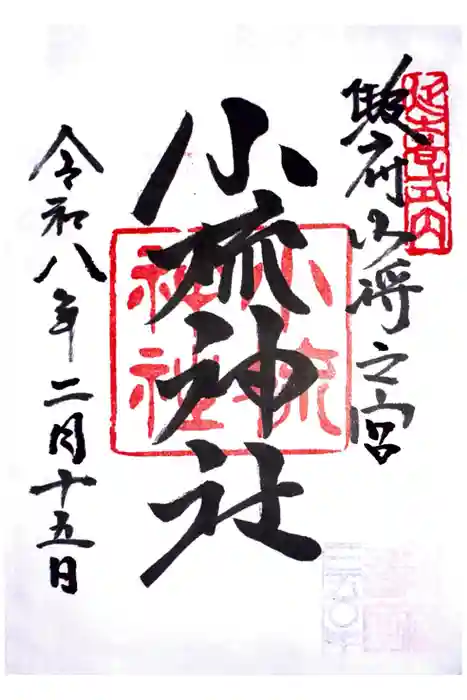 延喜式内
駿府少将之宮
小梳神社
小梳
神社
令和八年二月十五日